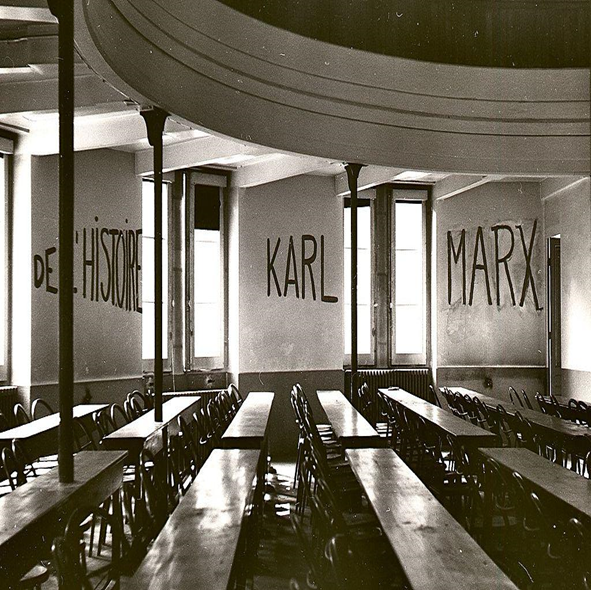 DE L'HISTOIRE
KARL
MARX